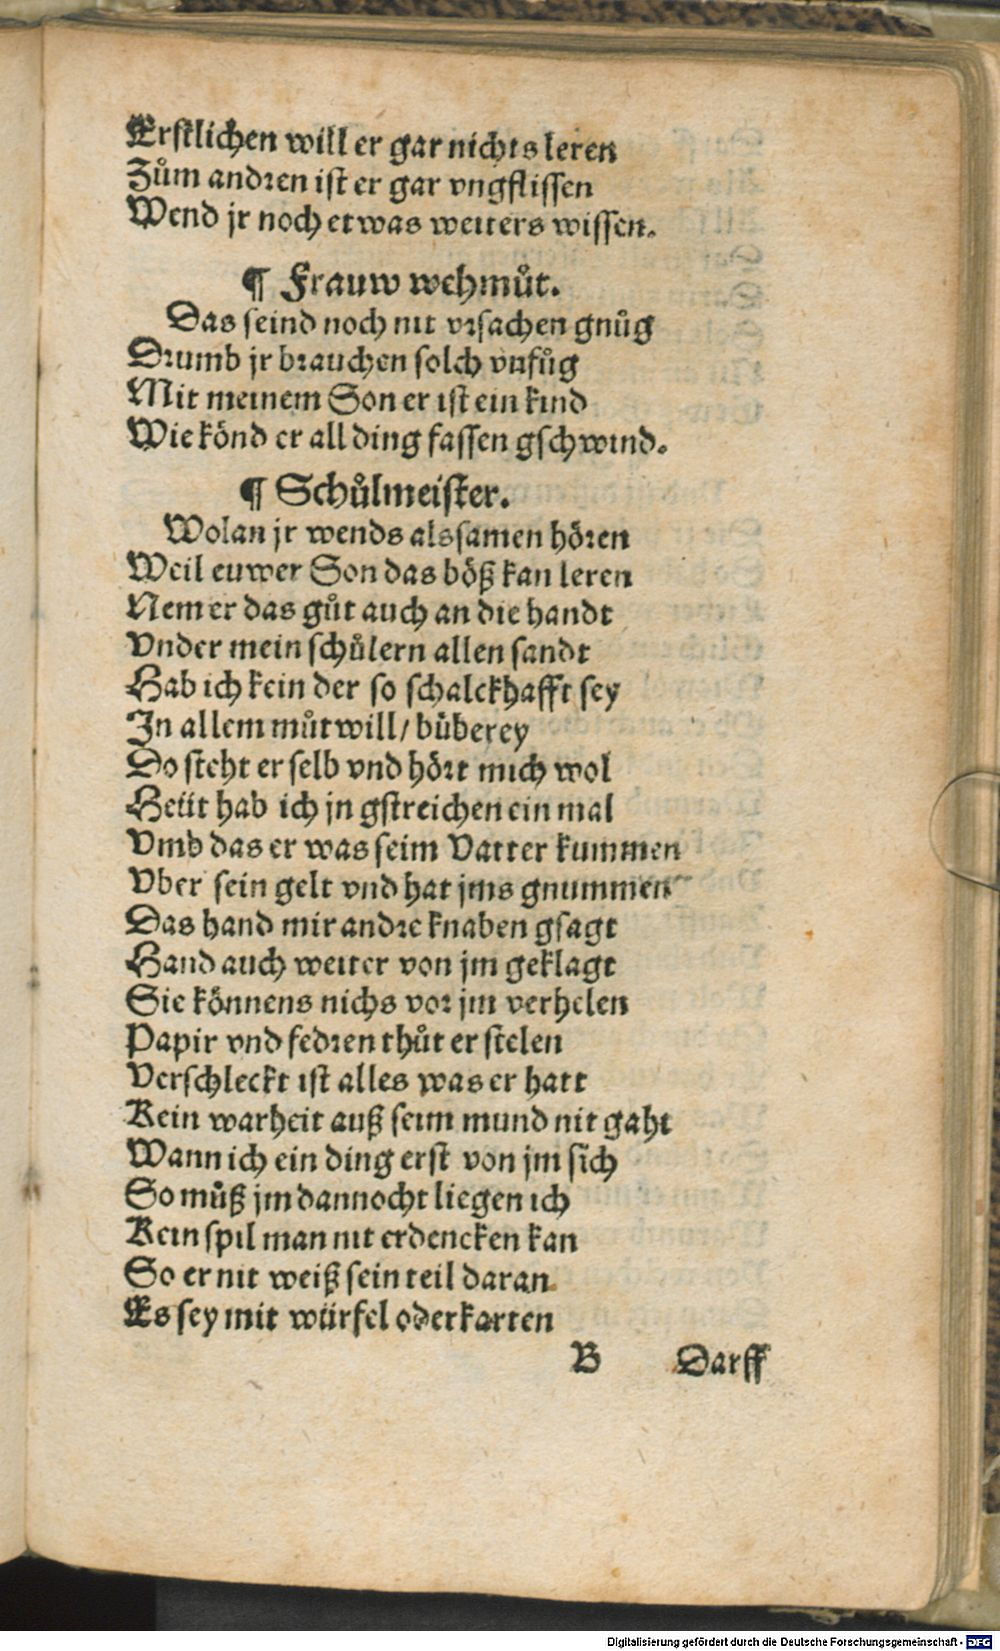 Erstlichen will er gar nichts leren
Zům andren ist er gar vngflissen
Wend jr noch etwas weiters wissen.
¶ Frauw wehmůt.
Das seind noch nit vrsachen gnůg
Drumb jr brauchen solch vnfůg
Mit meinem Son er ist ein kind
Wie könd er all ding fassen gschwind.
¶ Schůlmeister.
Wolan jr wends alssamen hören
Weil euwer Son das böß kan leren
Nem er das gůt auch an die handt
Vnder mein schůlern allen sandt
Hab ich kein der so schalckhafft sey
In allem můtwill / büberey
Do steht er selb vnd hört mich wol
Heüt hab ich jn gstreichen ein mal
Vmb das er was seim Vatter kummen
Vber sein gelt vnd hat jms gnummen
Das hand mir andre knaben gsagt
Hand auch weiter von jm geklagt
Sie könnens nichs vor jm verhelen
Papir vnd fedren thůt er stelen
Verschleckt ist alles was er hatt
Kein warheit auß seim mund nit gaht
Wann ich ein ding erst von jm sich
So můß jm dannocht liegen ich
Kein spil man nit erdencken kan
So er nit weiß sein teil daran
Es sey mit würfel oder karten
B Darff
Digitalisierung gefördert durch die Deutsche Forschungsgemeinschaft - DFG